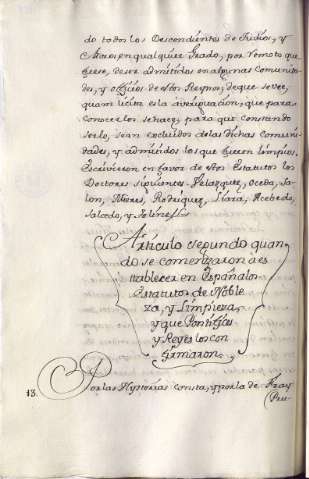 do todos los Descendientes de Judios, y
Moros, en qualquier Grado, por remoto que
fuese, de ser admitidos en algunas Comunida-
des, y oficios de estos Reynos; de que se vee,
quam licita es la averiguacion, que para
conocerlos se haze; para que constando
serlo, sean excluidos de las dichas comuni-
dades, y admitidos los que fueren limpios.
Escrivieron en favor de estos Estatutos los
Doctores siguientes. Velazquez, Oceda, Sa-
lon, Mores, Rodriguez, Acebedo,
Salcedo, y
Articulo segundo quan-
do se comenzaron a es
tablecer en España los
Estatutos de Noble
za, y Limpieza,
y que Pontifices
y Reyes los con
firmaron.
13. Por las Hystorias consta, y por la de Fray
(Pru-